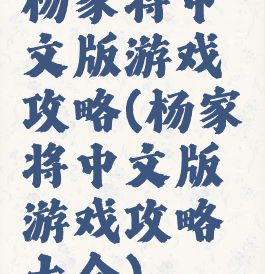 杨家将中
文版游戏
攻略(杨家
将中文版
游戏攻略
大全)